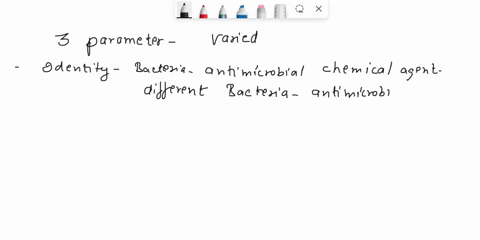 3 parameter - varied
- Identity - Bacteria - antimicrobial chemical agent.
different Bacteria - antimicrobi